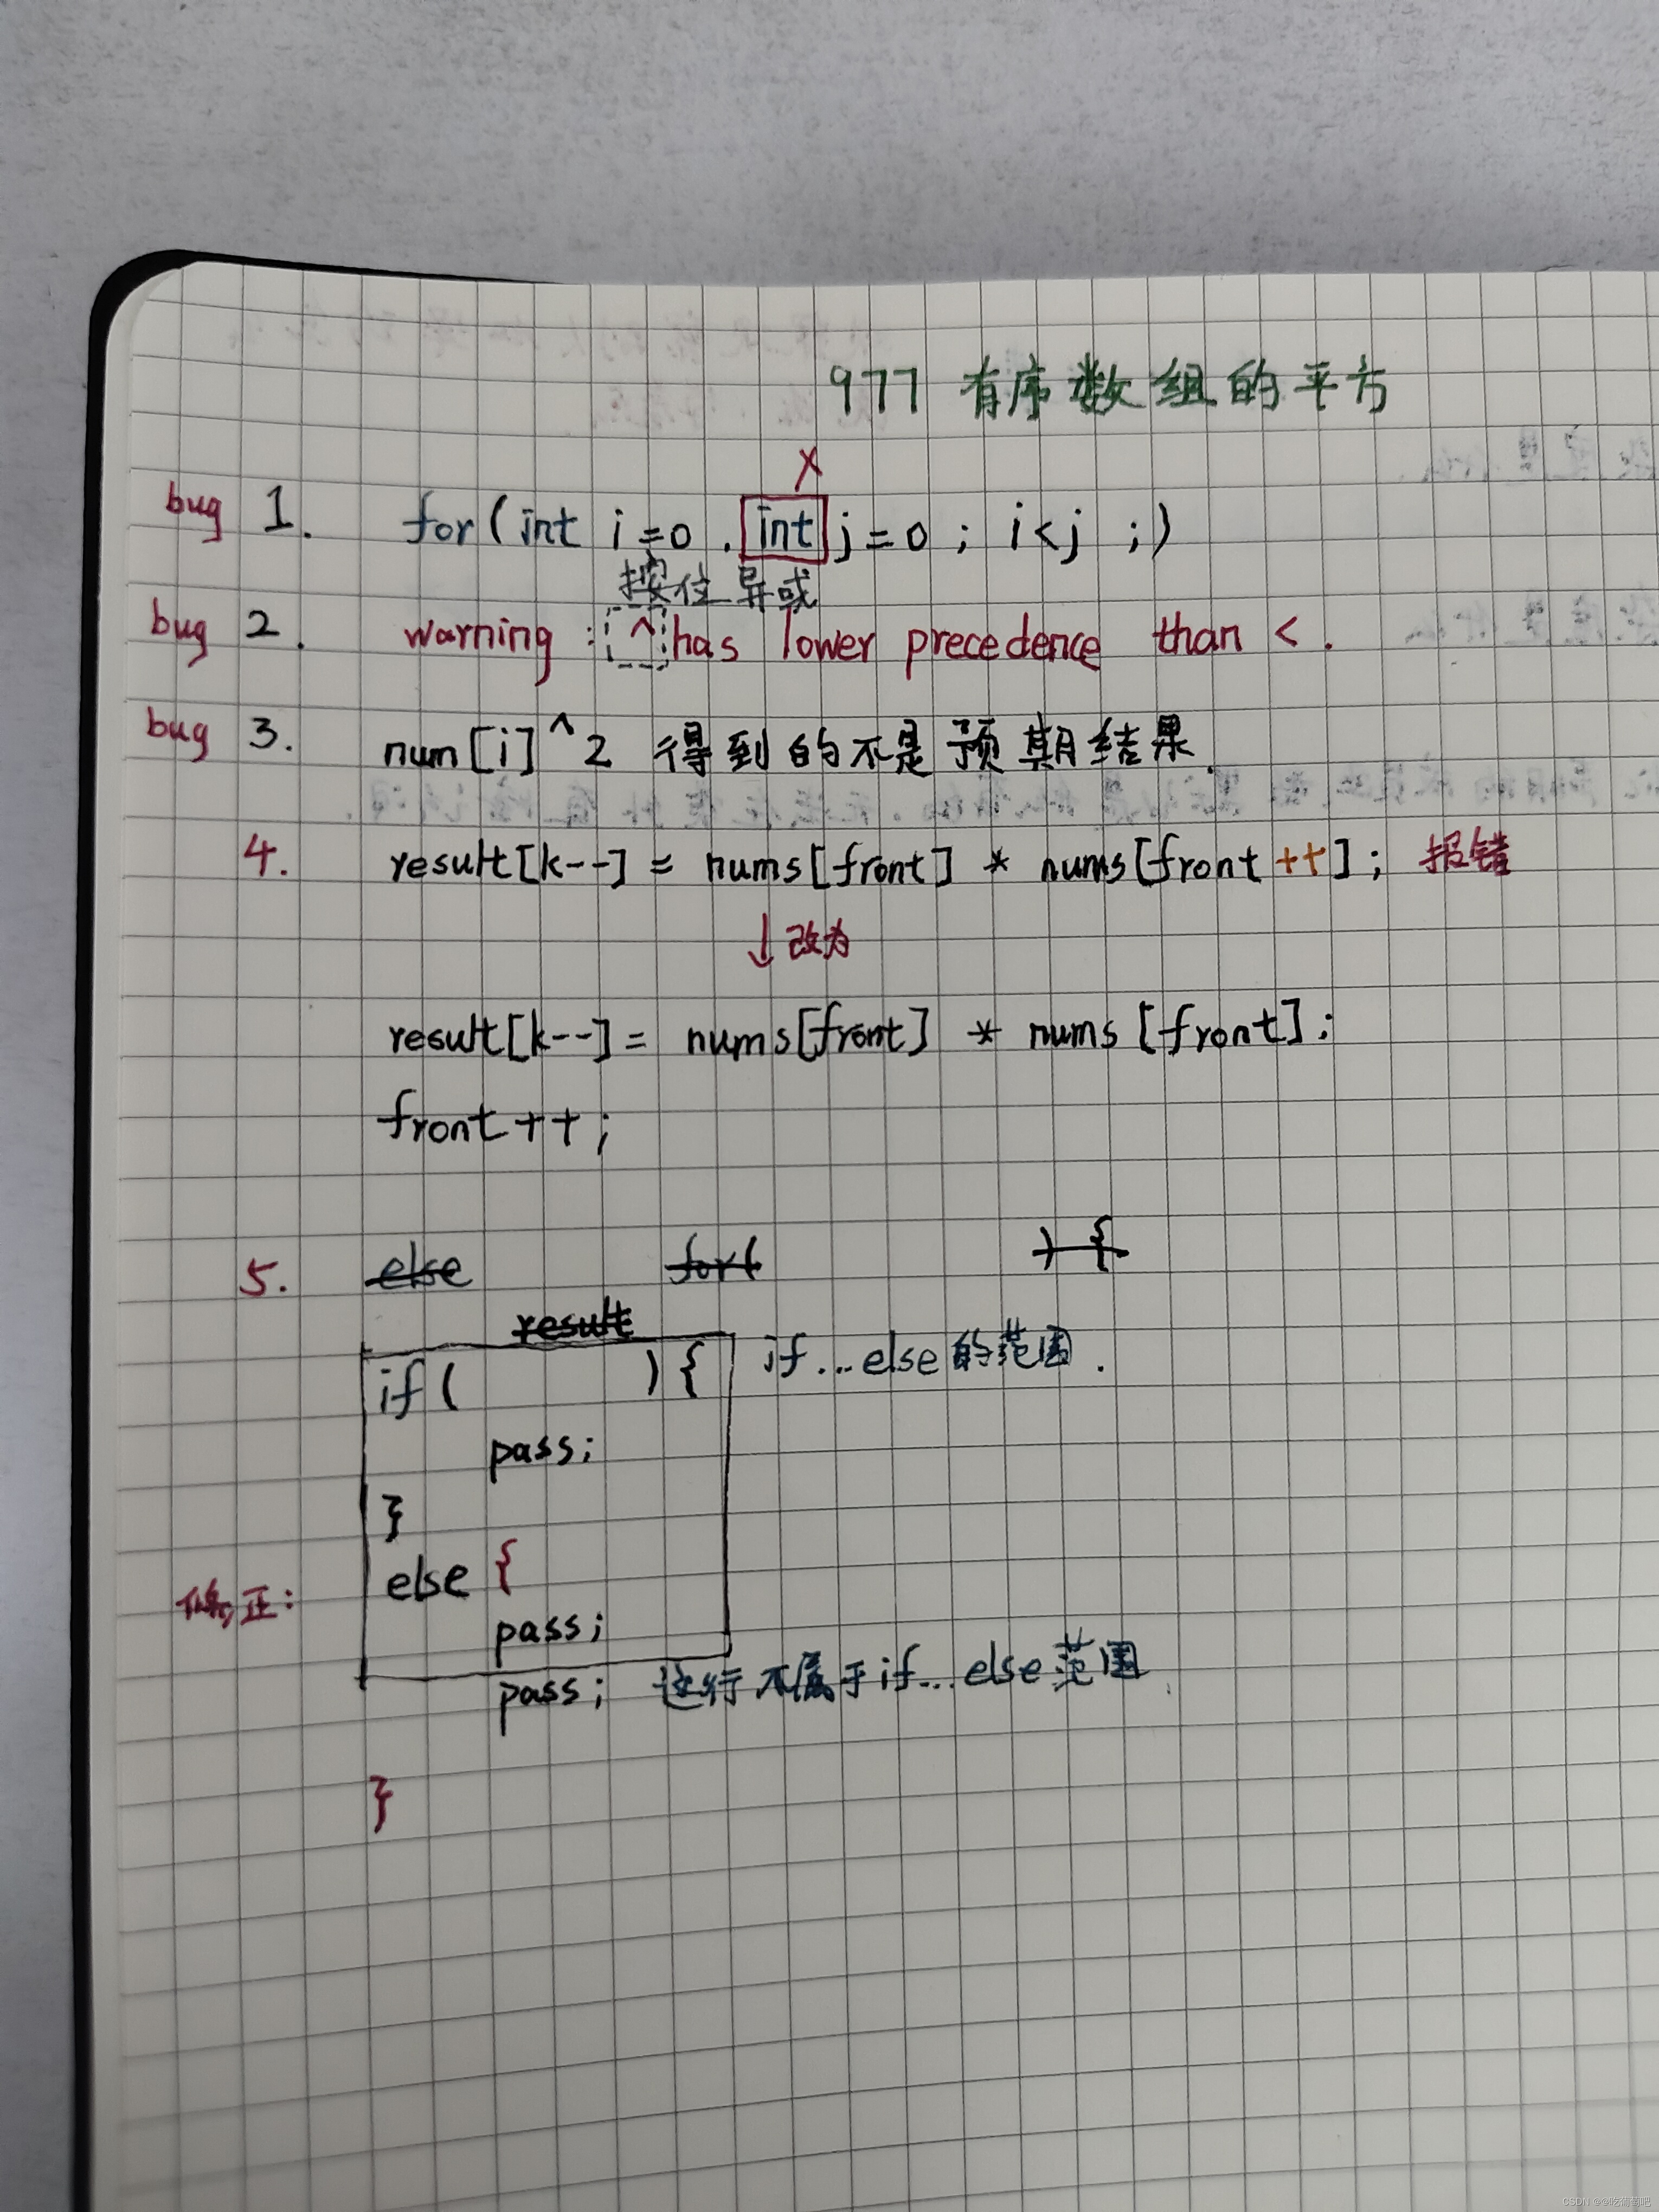 977 有序数组的平方
X
bug 1. for(int i=0 , int j=0 ; i<j ;)
按位异或
bug 2. warning : ^ has lower precedence than < .
bug 3. num[i]^2 得到的不是预期结果.
4. result[k--] = nums[front] * nums[front++]; 报错
↓改为
result[k--] = nums[front] * nums[front];
front++;
5. else for( ) {
result
if( ){ if...else的范围.
pass;
}
else {
修正:
pass;
pass; 这行不属于if...else范围.
}
CSDN @@吃荷荷吧